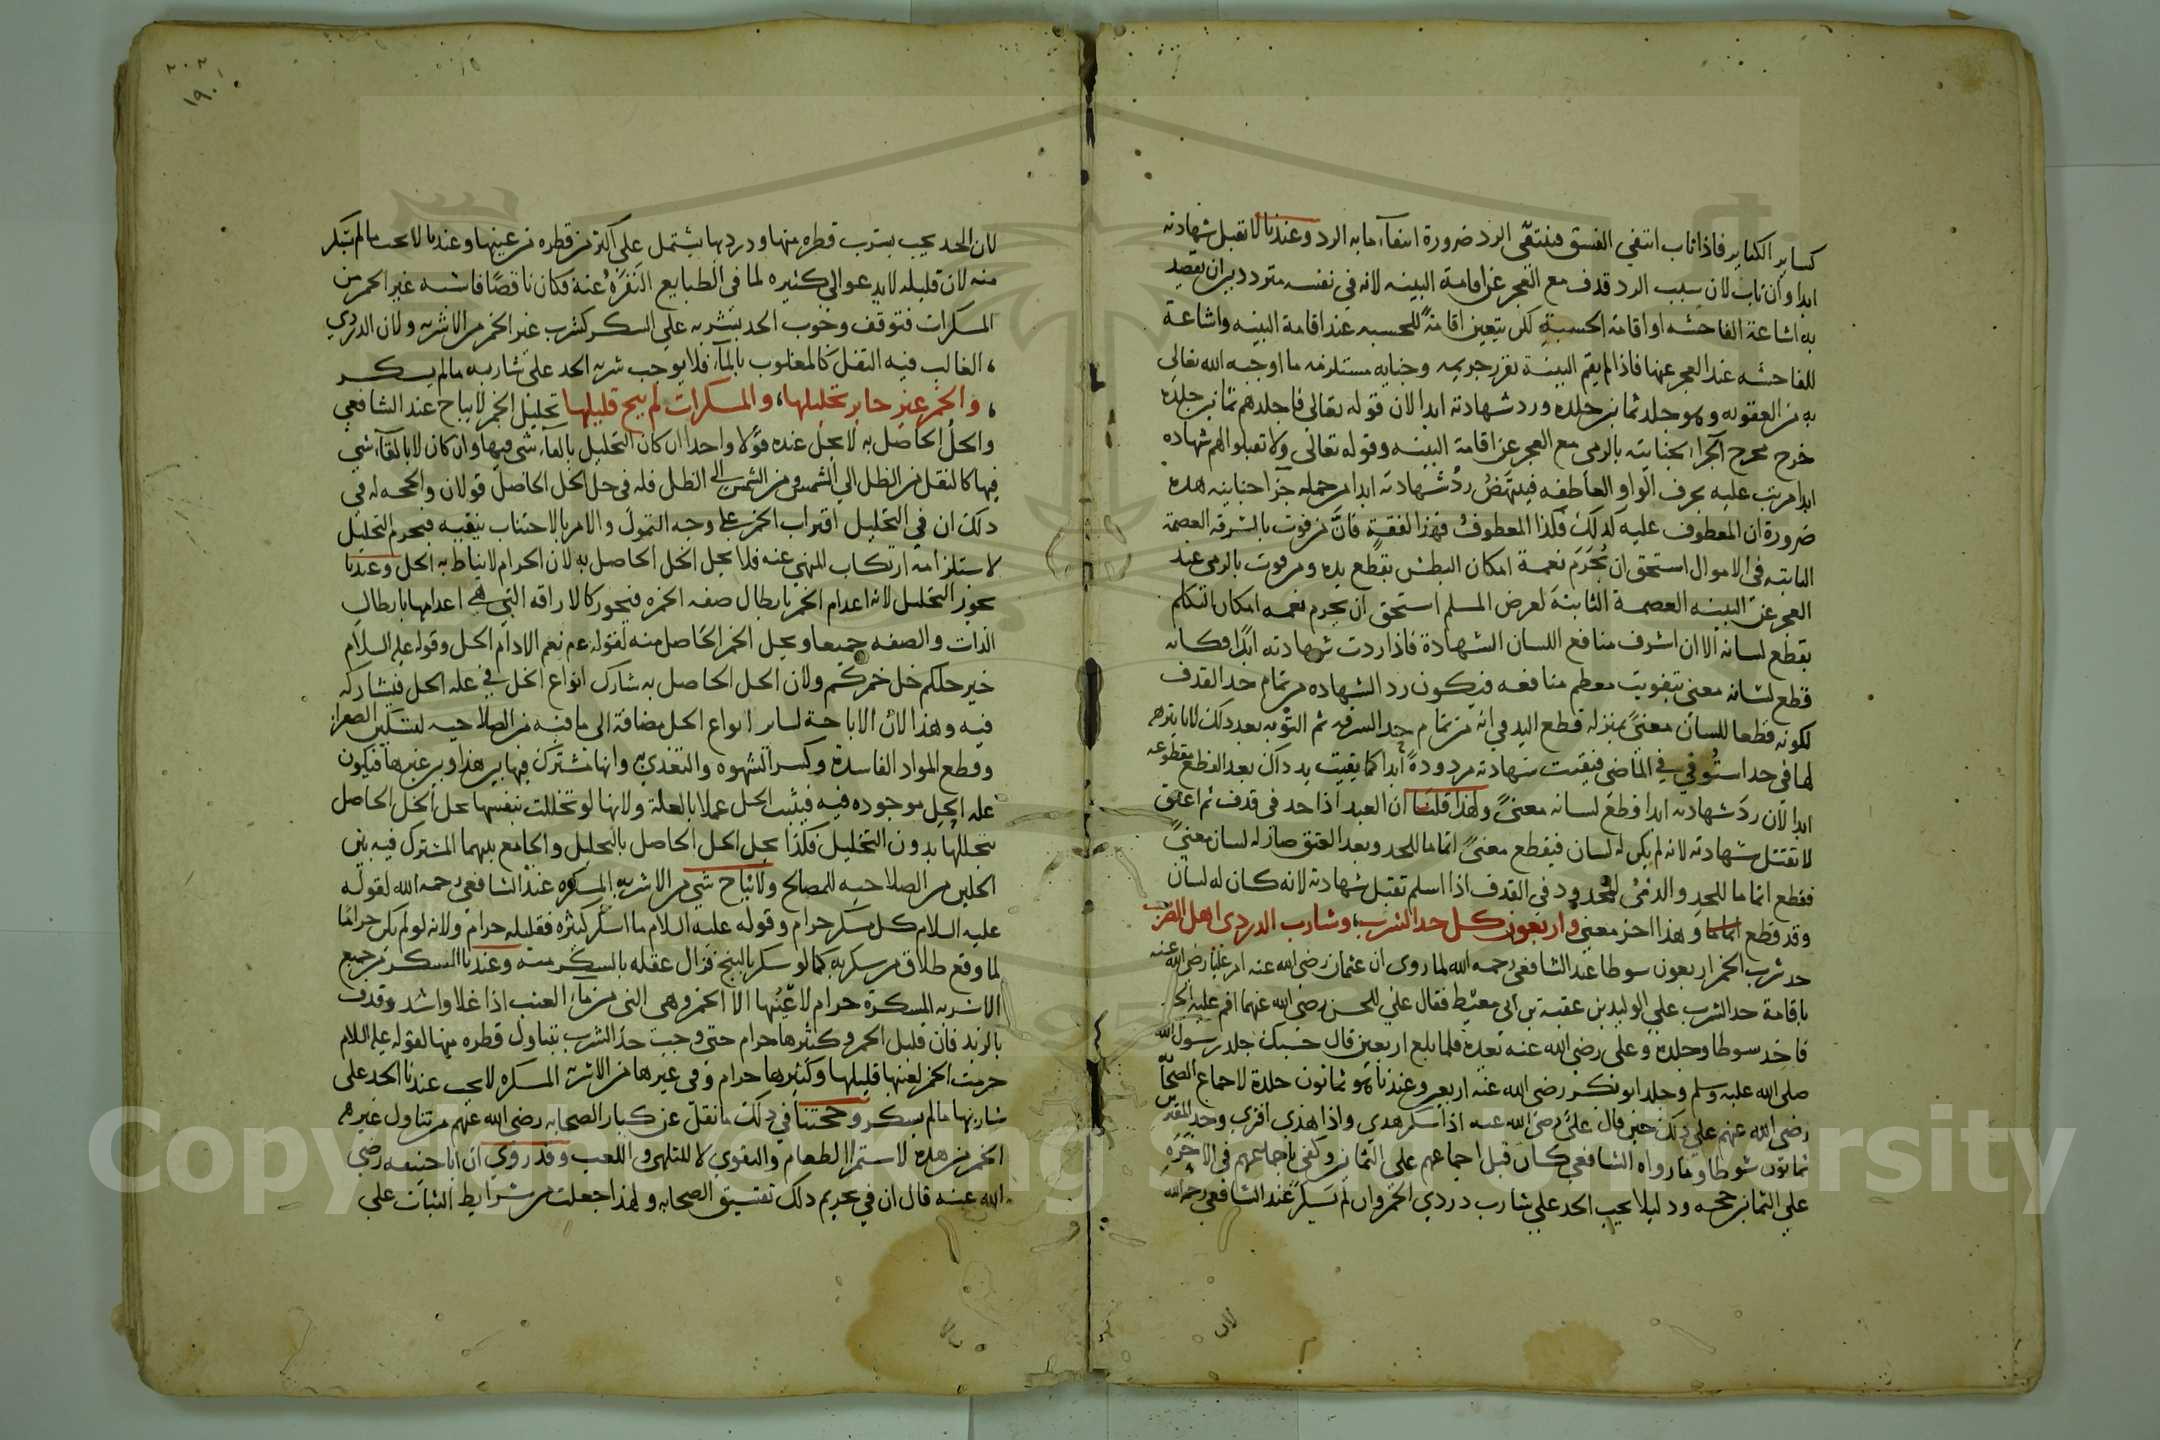 كساير الكباير فاذا تاب انتفي الفسق فينتفى الرد ضرورة انتفآء ما به الرد وعندنا لا تقبل شهادته
ابدا وان تاب لان سبب الرد قذف مع العجز عن اقامة البينه لانه فى نفسه متردد بين ان يقصد
به اشاعة الفاحشه او اقامة الحسبة لكن يتعين اقامةً للحسبه عند اقامة البينه واشاعة
للفاحشه عند العجز عنها فاذا لم يقم البينة تقرر جريمه وجنايه مستلزمه ما اوجبه الله تعالى
به من العقوبه وهو جلد ثمانين جلده ورد شهادته ابدا لان قوله تعالى فاجلدهم ثمانين جلده
خرج مخرج الجزا بجنايته بالرمى مع العجز عن اقامة البينه وقوله تعالى ولا تقبلوا لهم شهاده
ابدا مرتب عليه بحرف الواو العاطفه فينتهض ردُّ شهادته ابدا من جملة جزآ جنايته هذه
ضرورة ان المعطوف عليه كذلك فكذا المعطوفُ فهذا لفقهٍ فانَّ من فوت بالسرقه العصمة
الثابته في الاموال استحق ان يُحْرَمَ نعمة امكان البطش بقطع يده ومن فوت بالرمى عند
العجز عن البينه العصمة الثابتة لعرض المسلم استحق ان يحرم نعمه امكان التكلم
بقطع لسانه الا ان اشرف منافع اللسان الشهادة فاذا ردت شهادته ابدًا فكانه
قطع لسانه معنى بتفويت معظم منافعه فيكون رد الشهاده من تمام حد القذف
لكونه قطعا للسان معنىً بمنزلة قطع اليد في انه من تمام حد السرقه ثم التوبه بعد ذلك لا تاثير
لها فى حد استُوفي في الماضى فبقيت شهادته مردودةً ابدا كما بقيت يد ذاك بعد القطع مقطوعه
ابدا لان ردَّ شهادته ابدا قطع لسانه معنىً ولهذا قلنا ان العبد اذا حد فى قذف ثم اعتق
لا تقبل شهادته لانه لم يكن له لسان فيقطع معنىً اتماما للحد وبعد العتق صار له لسان معنىً
فقطع اتماما للحد والذمىُّ المحدود في القذف اذا اسلم تقبل شهادته لانه كان له لسان
وقد قطع اتماما وهذا اخر معنى واربعون كل حد الشرب، وشارب الدردى اهل الضرب
حد شرب الخمر اربعون سوطا عند الشافعى رحمه الله لما روى ان عثمان رضى الله عنه امر عليا رضى الله عنه
باقامة حد الشرب على الوليد بن عقبة بن ابى معيط فقال على للحسن رضى الله عنهما اقم عليه الحد
فاخذ سوطا وجلده وعلى رضى الله عنه يعده فلما بلغ اربعين قال حسبك جلد رسول الله
صلى الله عليه وسلم وجلد ابو بكر رضى الله عنه اربعين وعندنا هو ثمانون جلدة لاجماع الصحابه
رضى الله عنهم على ذلك حين قال على رضى الله عنه اذا سكر هذي واذا هذي افترى وحد المفترين
ثمانون سوطا وما رواه الشافعى كان قبل اجماعهم على الثمانين وكفى باجماعهم فى الاخرة
على الثمانين حجه ودليلا يجب الحد على شارب دردي الخمر وان لم يَسْكَرْ عند الشافعى رحمه الله
لان
٢٠٢
١٩٠
لان الحد يجب بشرب قطره منها ودرديها يشتمل على اكثر من قطره من عينها وعندنا لا يجب ما لم يسكر
منه لان قليله لا يدعو الى كثيره لما فى الطبايع النفرةُ عنه فكان ناقصًا فاشبه غير الخمر من
المسكرات فتوقف وجوب الحد بشربه على السكر كشرب غير الخمر من الاشربه ولان الدردي
الغالب فيه الثفل كالمغلوب بالمآء فلا يوجب شربه الحد على شاربه ما لم يسكر
والخمر غير جايز تخليلها، والمسكرات لم يبح قليلها تخليل الخمر لا يباح عند الشافعي
والخلُّ الحاصل به لا يحل عنده قولا واحدا ان كان التخليل بالقآء شى فيها وان كان لا بالقآء شي
فيها كالنقل من الظل الى الشمس ومن الشمس الى الظل فله فى حل الخل الحاصل قولان والحجه له فى
ذلك ان في التخليل اقتراب الخمر على وجه التمول والامر بالاجتناب ينفيه فيحرم التخليل
لاستلزامه ارتكاب المنهي عنه فلا يحل الخل الحاصل به لان الحرام لا يناط به الحل وعندنا
يجوز التخليل لانه اعدام الخمر بابطال صفه الخمره فيجوز كالاراقه التى هى اعدامها بابطال
الذات والصفه جميعا ويحل الخمر الحاصل منه لقوله عم نعم الادام الخل وقوله عليه السلام
خير خلكم خل خمركم ولان الخل الحاصل به شارك انواع الخل في علة الحل فيشاركه
فيه وهذا لان الاباحة لساير انواع الخل مضافة الى ما فيه من الصلاحيه لتسكين الصفرا
وقطع المواد الفاسدة وكسر الشهوه والتغذى به وانها مشترك فيها بين هذا وبين غيرها فيكون
علة الحل موجوده فيه فيثبت الحل عملا بالعلة ولانها لو تخللت بنفسها حل الخل الحاصل
بتخللها بدون التخليل فكذا يحل الخل الحاصل بالتخليل والجامع بينهما المشترك فيه بين
الخلين من الصلاحيه للمصالح ولا يباح شي من الاشربه المسكره عند الشافعى رحمه الله لقوله
عليه السلام كل مسكر حرام وقوله عليه السلام ما اسكر كثيره فقليله حرام ولانه لو لم يكن حرامًا
لما وقع طلاق من سكر به كما لو سكر بالبنج فزال عقله بالسكر منه وعندنا السكر من جميع
الاشربه المسكرة حرام لا عَيْنُها الا الخمر وهى النى من مآء العنب اذا غلا واشتد وقذف
بالزبد فان قليل الخمر وكثيرها حرام حتى وجب حد الشرب بتناول قطره منها لقوله عليه السلام
حرمت الخمر لعينها قليلها وكثيرها حرام وفى غيرها من الاشربه المسكره لا يجب عندنا الحد على
شاربها ما لم يسكر وحجتنا في ذلك ما نقل عن كبار الصحابه رضى الله عنهم من تناول غير
الخمر من هذه لاستمرا الطعام والتقوي لا للتلهى واللعب وقد روي ان ابا حنيفه رضى
الله عنه قال ان في تحريم ذلك تفسيق الصحابه ولهذا جعلت من شرايط الثبات على
Copyright © King Saud University
1957